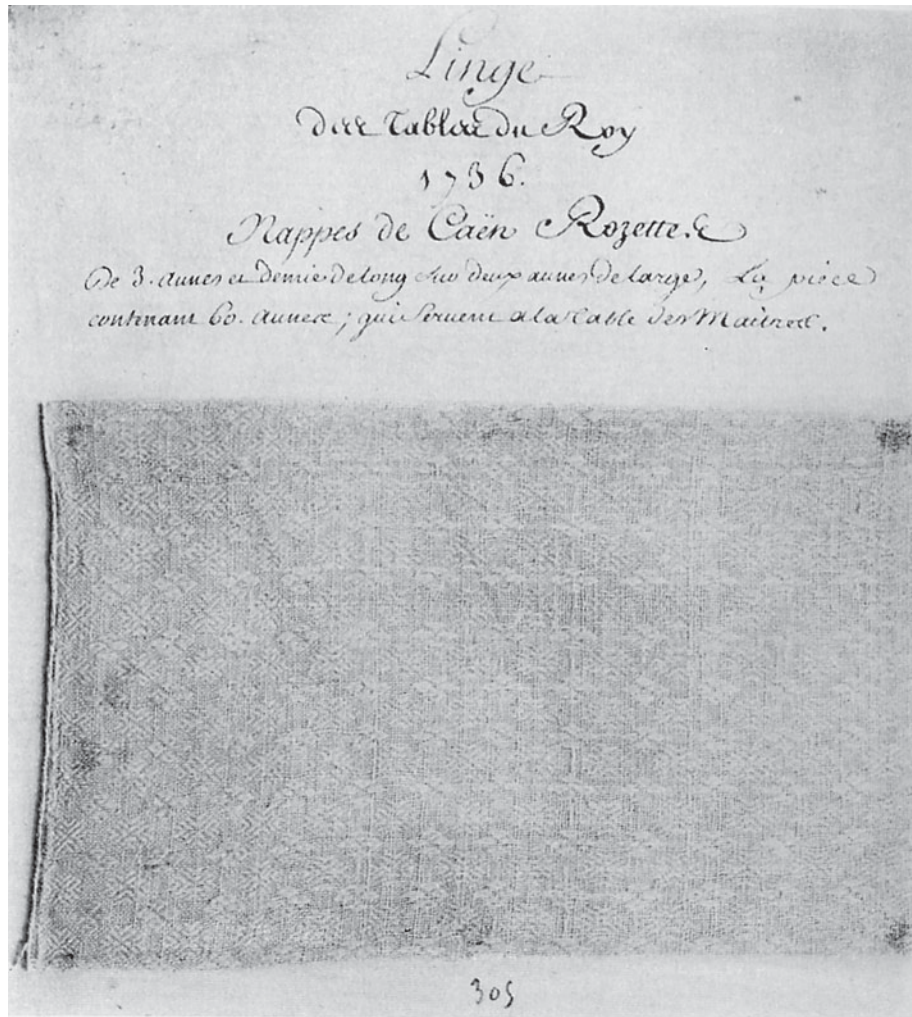 Linge
des Tables du Roy
1736.
Nappes de Caën Rozette.
De 3. aunes et demie de long sur deux aunes de large, La pièce
contenant 60. aunes; qui servent a la table des Maitres.
305